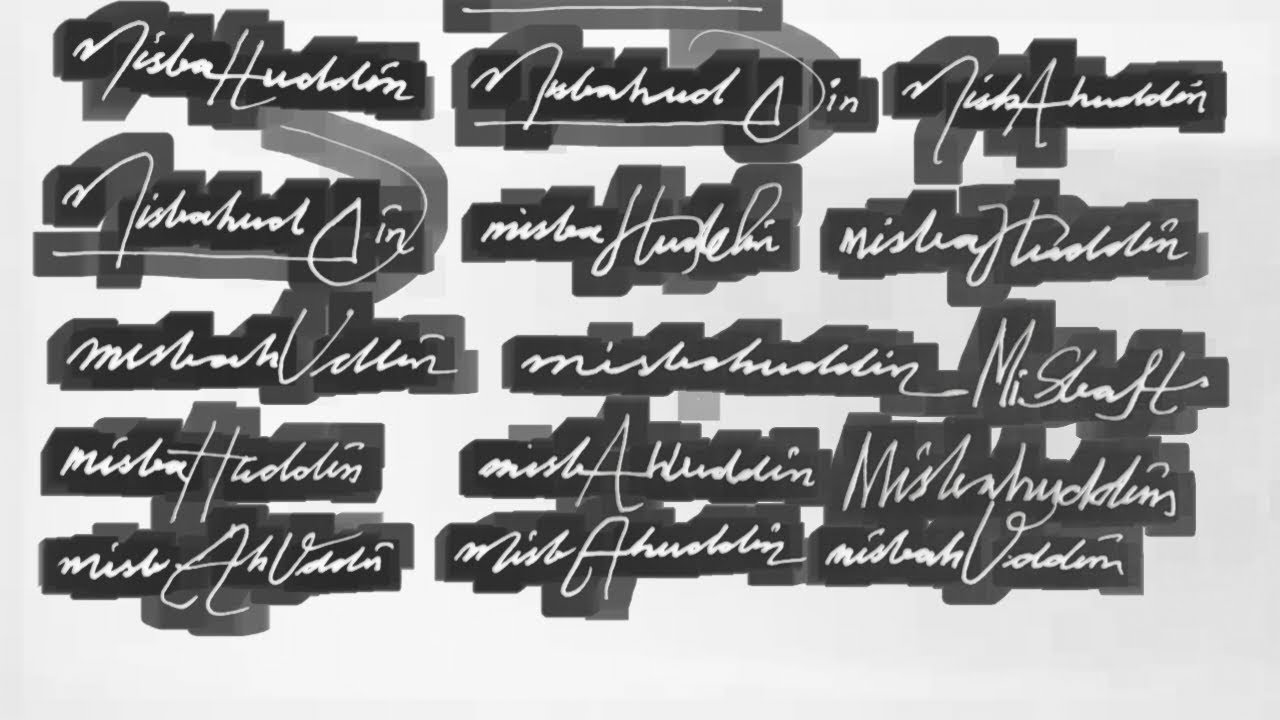 MisbaHuddin Misbahud Din MisbAhuddin
Misbahud Din misbaHuddin misbaHuddin
misbahUddin misbahuddin MiSbaH
misbaHuddin misbAhuddin Misbahuddin
misbAhUddin misbAhuddin misbahUddin